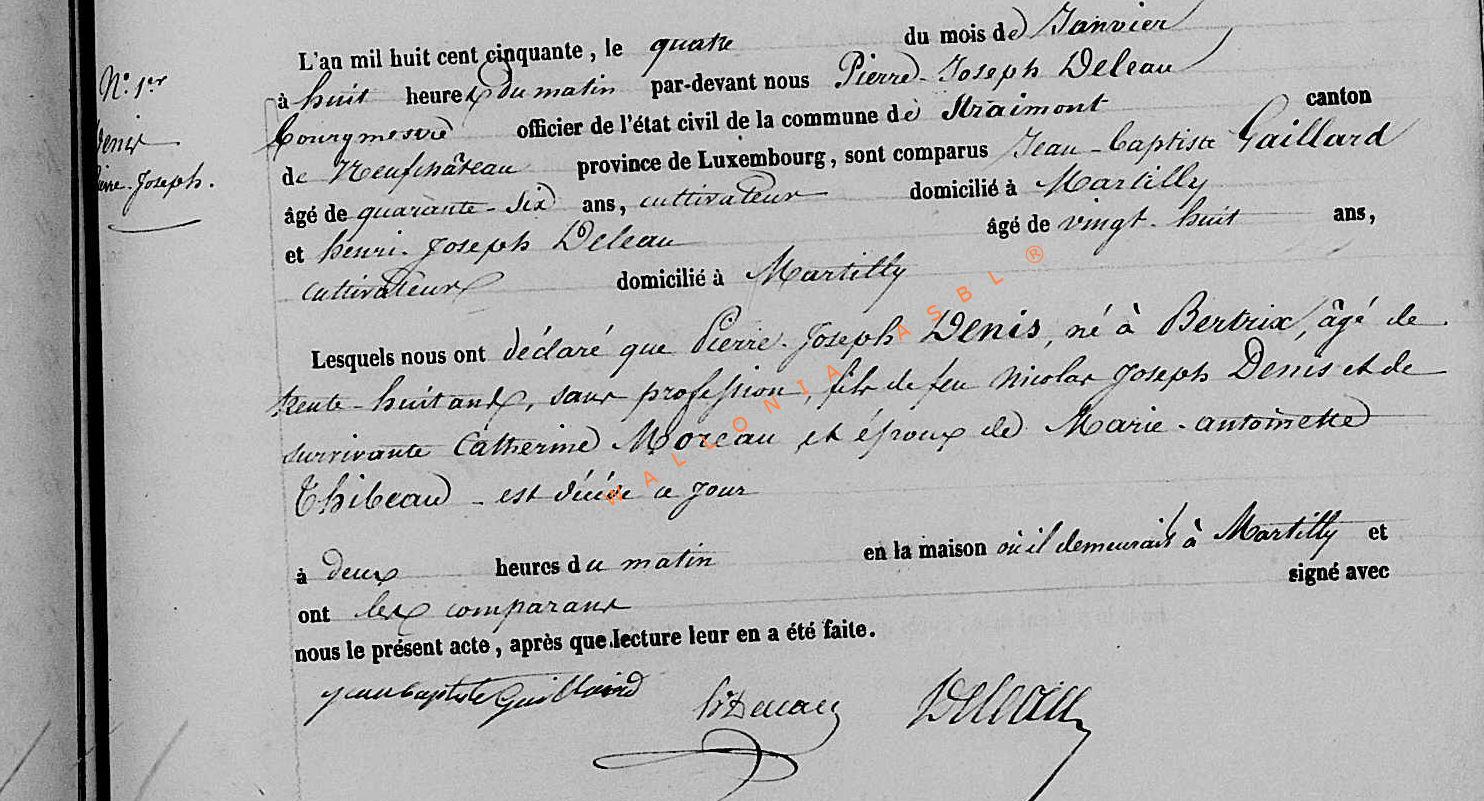 N° 1er
Denis
Pierre-Joseph.
L'an mil huit cent cinquante, le quatre du mois de Janvier
à huit heures du matin par-devant nous Pierre-Joseph Deleau
bourgmestre officier de l'état civil de la commune de Straimont canton
de Neufchâteau province de Luxembourg, sont comparus Jean-Baptiste Gaillard
âgé de quarante-six ans, cultivateur domicilié à Martilly
et henri-Joseph Deleau âgé de vingt-huit ans,
cultivateur domicilié à Martilly
Lesquels nous ont déclaré que Pierre-Joseph Denis, né à Bertrix, âgé de
trente-huit ans, sans profession, fils de feu Nicolas Joseph Denis et de
survivante Catherine Moreau et époux de Marie-antoinette
Thibeau - est décédé ce jour
à deux heures du matin en la maison où il demeurait à Martilly et
ont les comparans signé avec
nous le présent acte, après que lecture leur en a été faite.
jean baptiste Deleau
WALLONIA ASBL ®